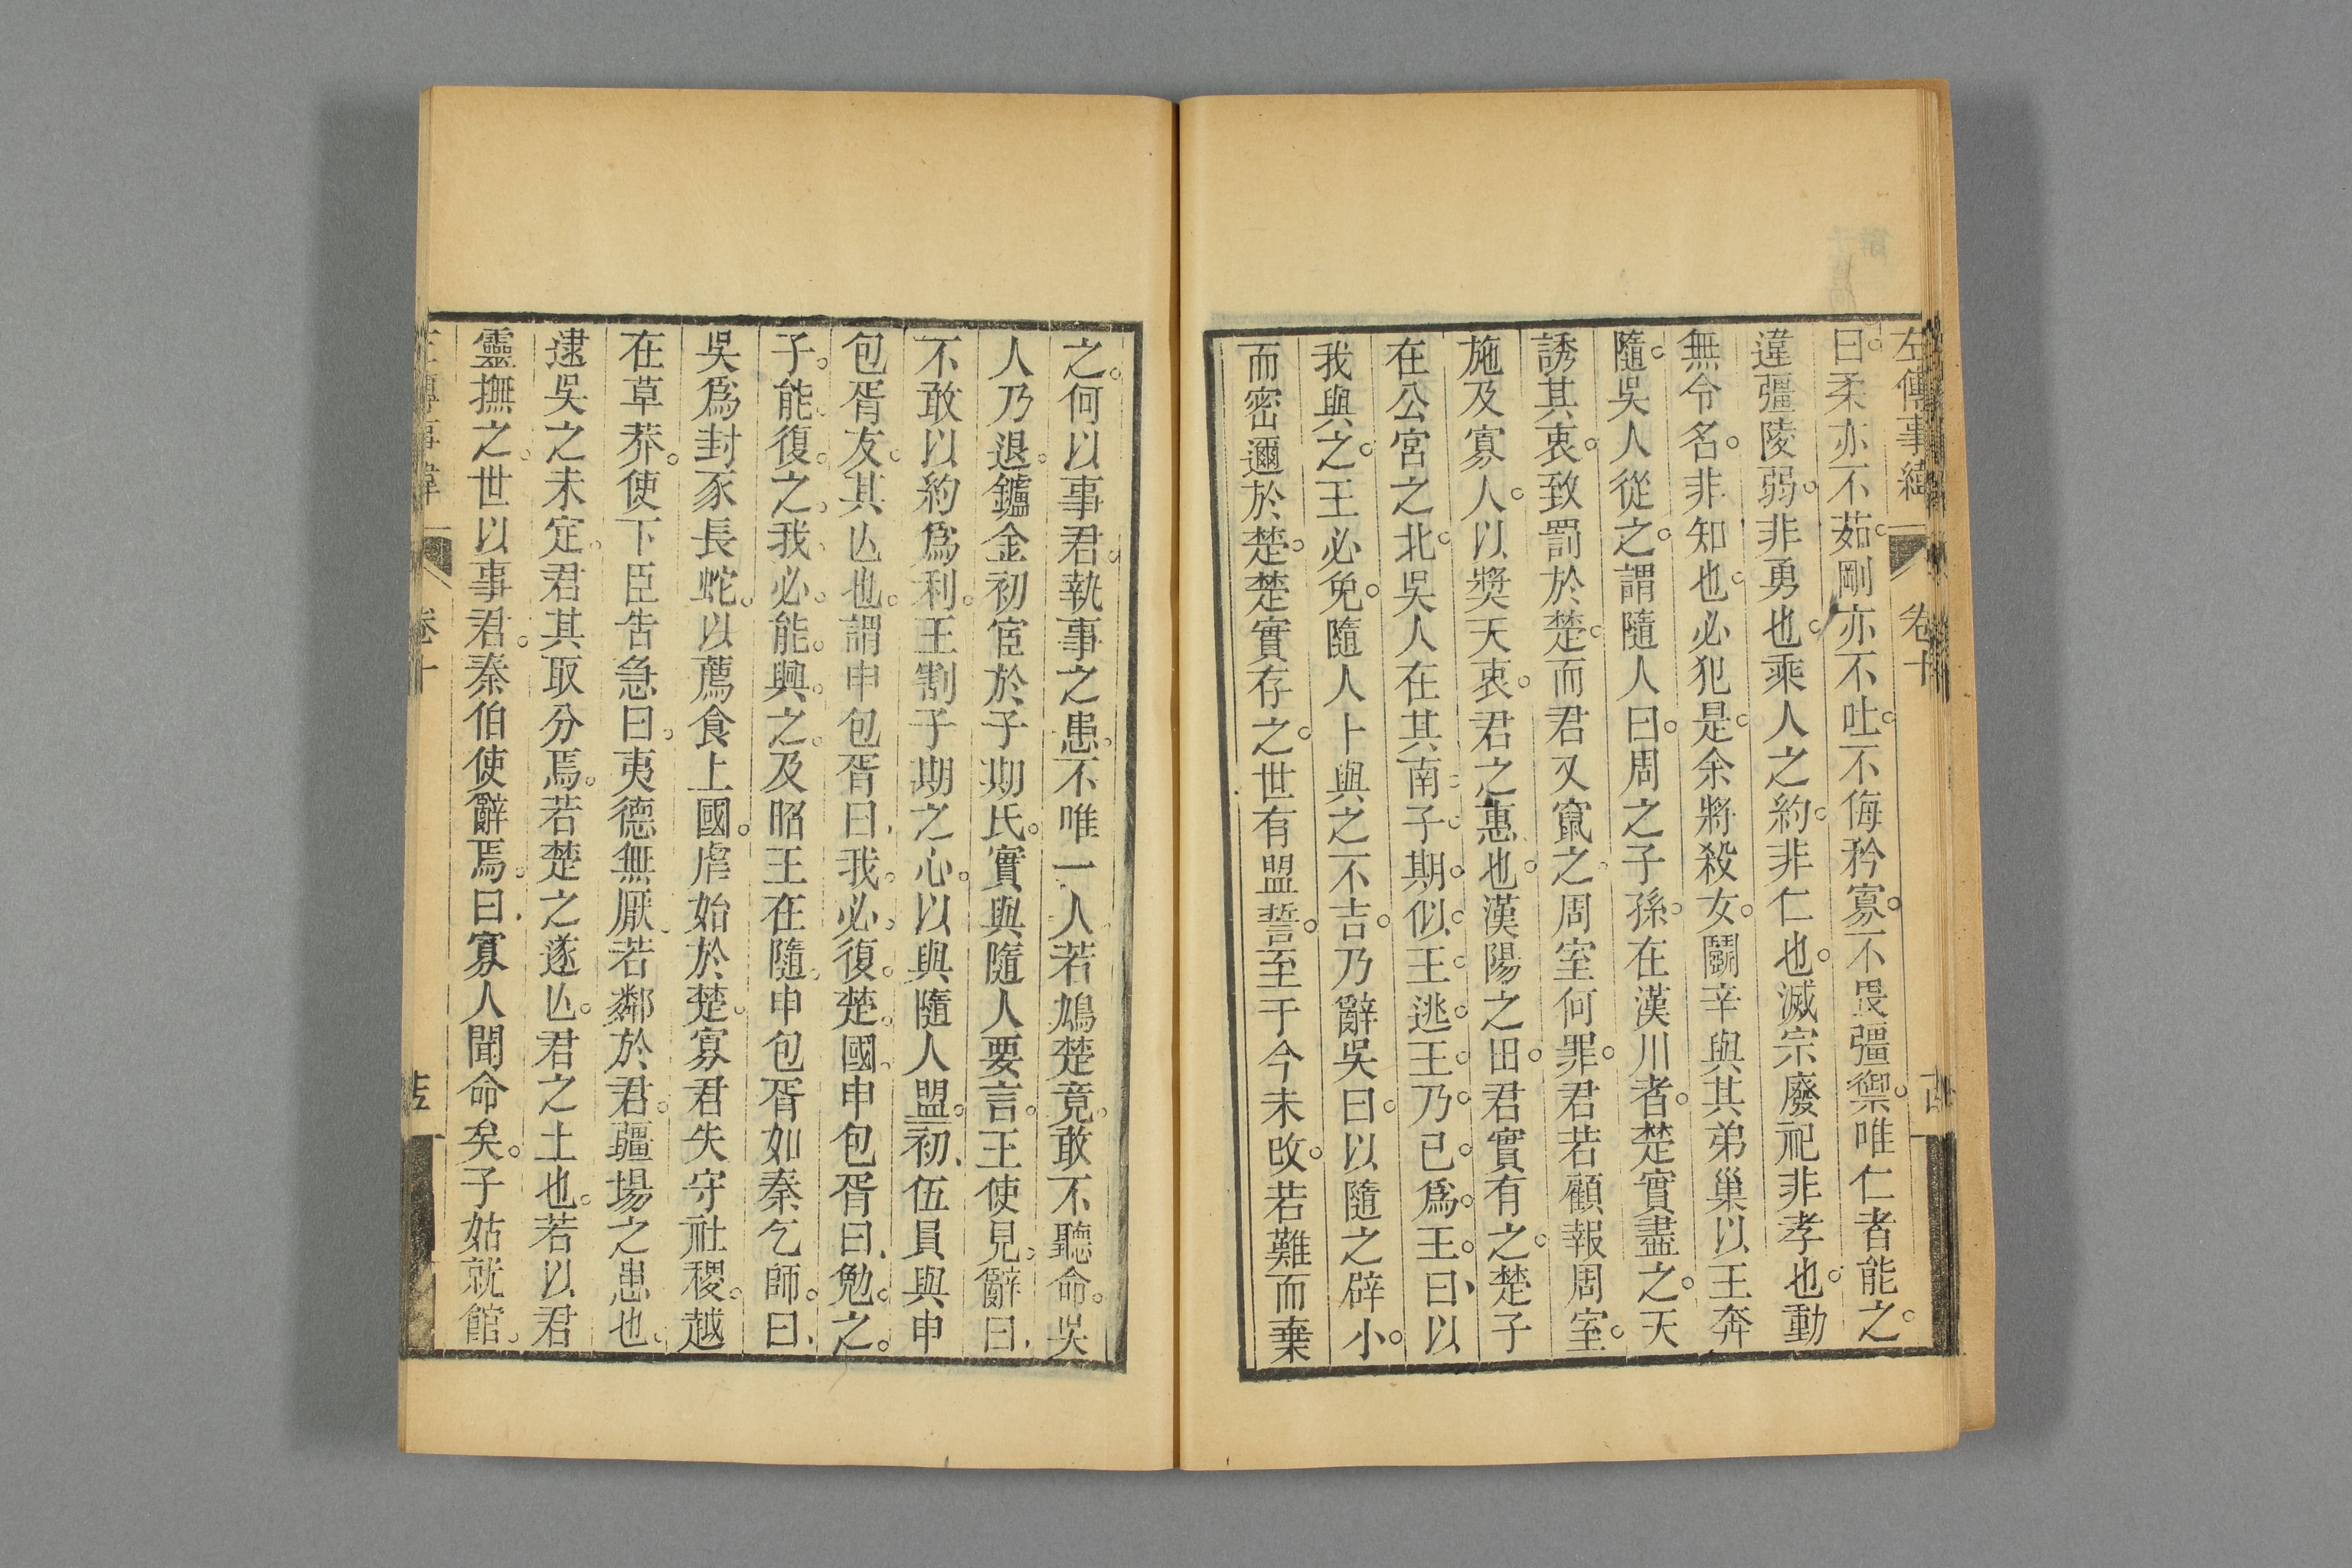 左傳事緯 卷十
曰。柔亦不茹。剛亦不吐。不侮矜寡。不畏彊禦。唯仁者能之。
違彊陵弱。非勇也。乘人之約。非仁也。滅宗廢祀。非孝也。動
無令名。非知也。必犯是。余將殺女。鬬辛與其弟巢以王奔
隨。吳人從之。謂隨人曰。周之子孫。在漢川者。楚實盡之。天
誘其衷。致罰於楚。而君又竄之。周室何罪。君若顧報周室。
施及寡人。以獎天衷。君之惠也。漢陽之田。君實有之。楚子
在公宮之北。吳人在其南。子期。似。王。逃。王。乃。已。爲。王。曰、以
我與之。王必免。隨人卜與之不吉。乃辭吳曰。以隨之辟小。
而密邇於楚。楚實存之。世有盟誓。至于今未改。若難而棄
之。何以事君。執事之患。不唯一人。若鳩楚竟。敢不聽命。吳
人乃退。鑪金初宦於子期氏。實與隨人要言。王使見。辭曰、
不敢以約爲利。王割子期之心。以與隨人盟。初、伍員與申
包胥友。其亾也。謂申包胥曰、我。必。復。楚。國。申包胥曰、勉。之。
子。能。復。之。我。必。能。興。之。及昭王在隨。申包胥如秦乞師。曰、
吳爲封豕長蛇。以薦食上國。虐始於楚。寡君失守社稷。越
在草莽。使下臣告急。曰。夷德無厭。若鄰於君。疆場之患也。
逮吳之未定。君其取分焉。若楚之遂亾。君之土也。若以君
靈撫之。世以事君。秦伯使辭焉。曰、寡人聞命矣。子姑就館。
卷十